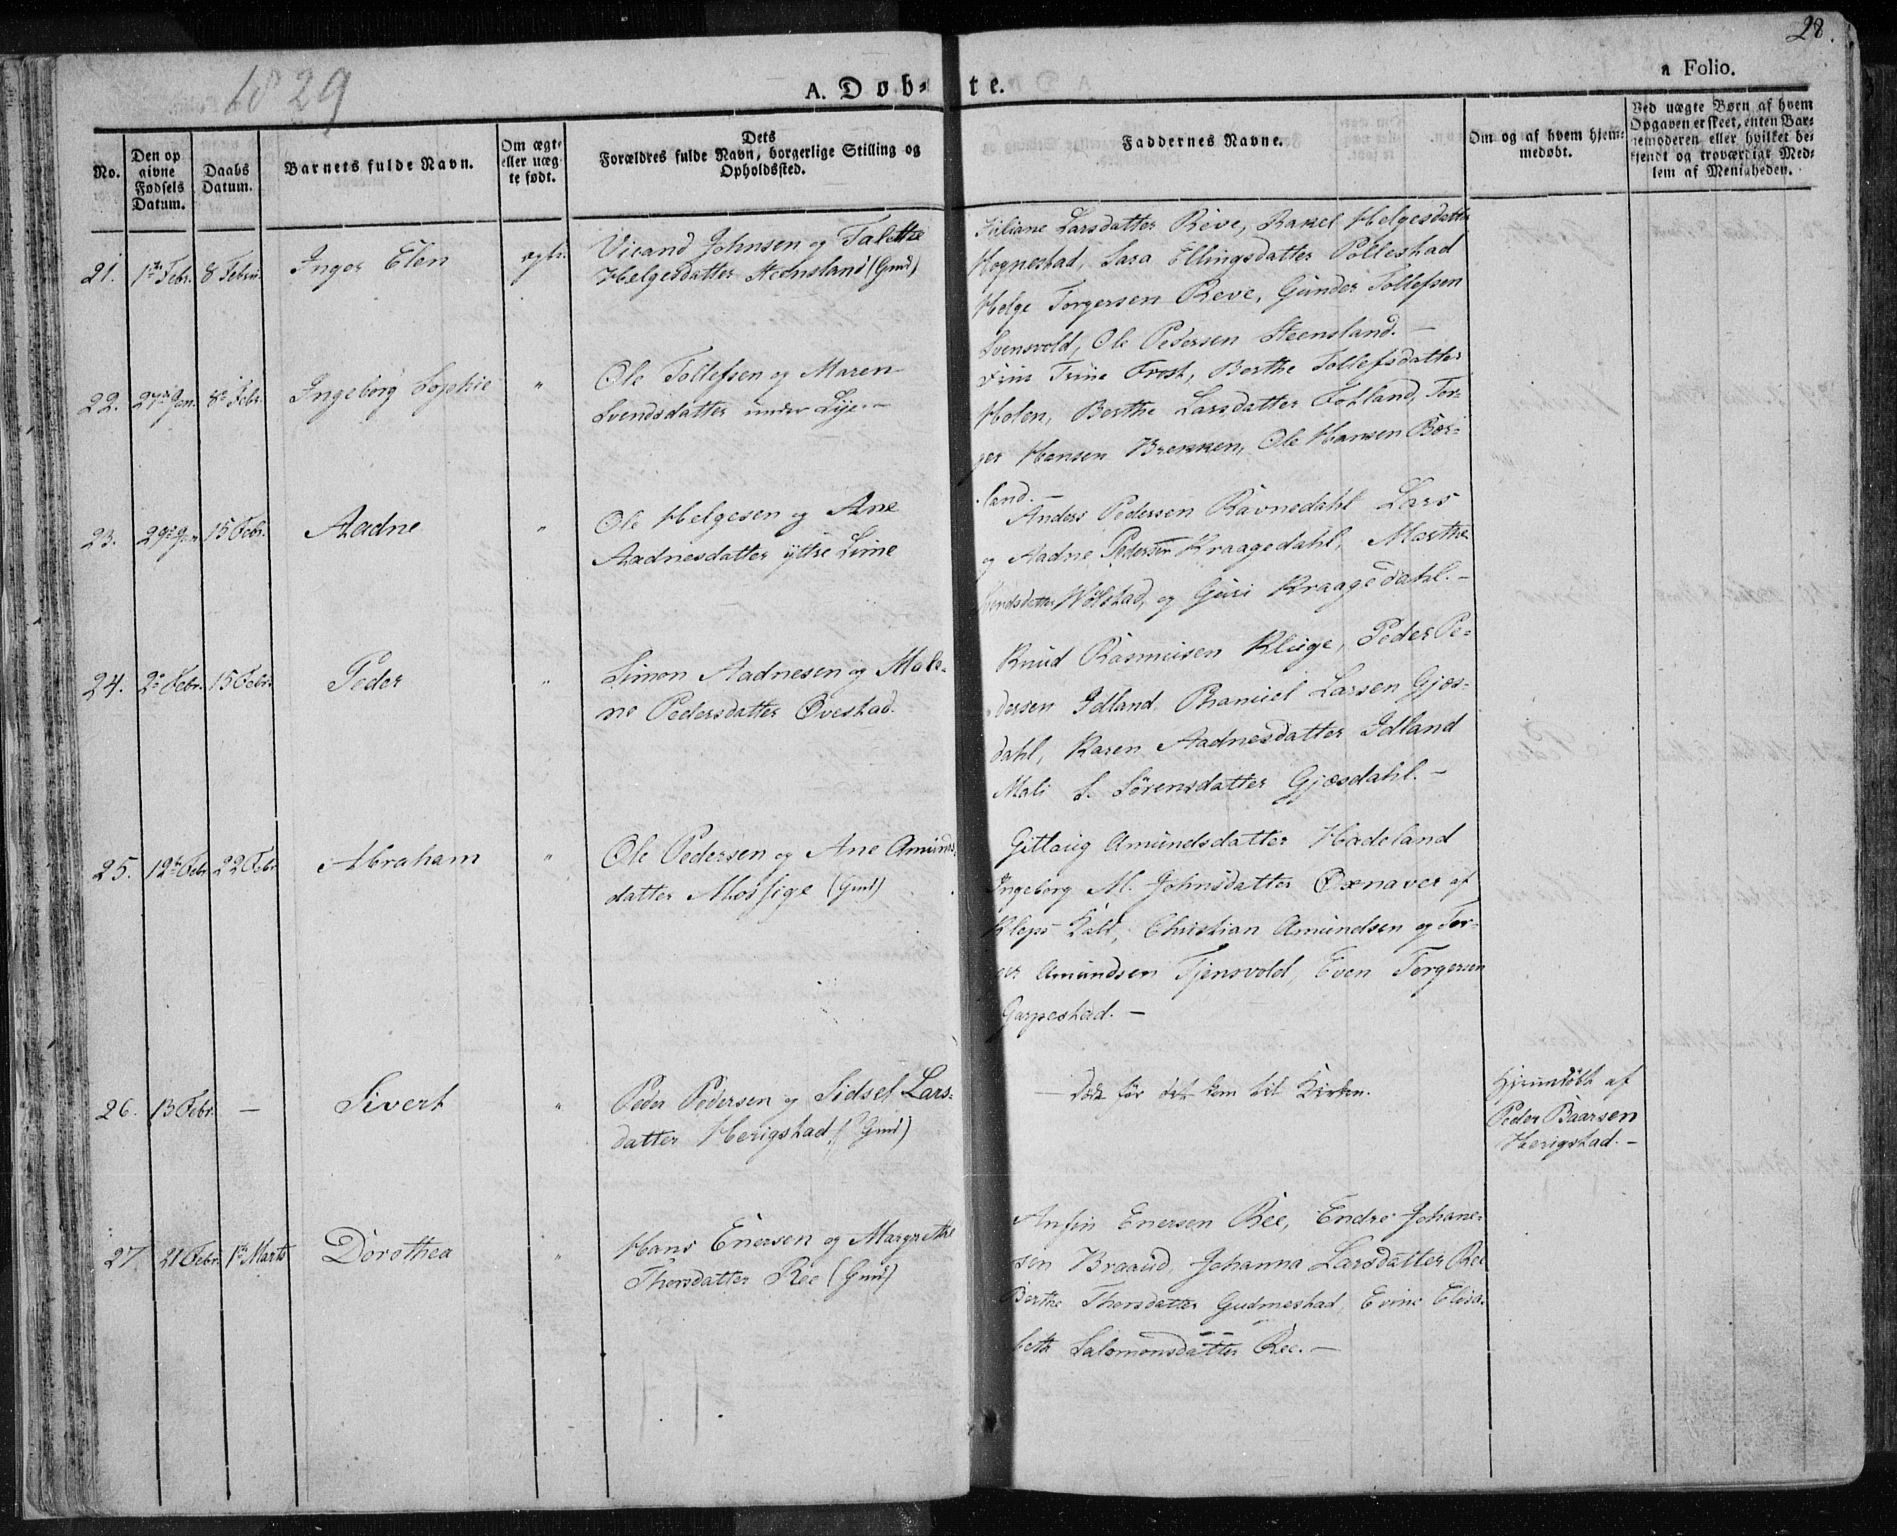 28.
1829
A. Døb-
te.
a Folio.
No.
Den op
givne
Fødsels
Datum.
Daabs
Datum.
Barnets fulde Navn.
Om ægte
eller uæg-
te født.
Dets
Forældres fulde Navn, borgerlige Stilling og
Opholdssted.
Faddernes Navne.
Om og af hvem hjem-
medøbt.
Ved uægte Børn af hvem
Opgaven er skeet, enten Bar-
nemoderen eller hvilket be-
kjendt og troværdigt Med-
lem af Menigheden.
21. 1te Febr. 8 Febru. Inger Elen ægte.
Vicand Johnsen og Talette
Helgesdatter Steensland (Gml)
Siliane Larsdatter Reve, Rakel Helgesdatter
Hognestad, Sara Ellingsdatter Pollestad
Helge Torgersen Reve, Gunder Tollefsen
Svensvold, Ole Pedersen Steensland.—
22. 27de Jan. 8de Febr. Ingeborg Sophie "
Ole Tollefsen og Maren
Svendsdatter under Lye.—
Trine Frost, Berthe Tollefsdatter
Holen, Berthe Larsdatter Fotland, Tor-
ger Hansen Brekken, Ole Hansen Bør-
land.—
23. 29de Jan 15 Febr. Aadne "
Ole Helgesen og Ane
Aadnesdatter yttre Lime
Anders Pedersen Ravnedahl Lars
og Aadne Pedersen Kraagedahl, Marthe
Svendsdatter Wolstad, og Guri Kraagedahl.—
24. 2de Febr. 15 Febr. Peder "
Simon Aadnesen og Male-
ne Pedersdatter Øvestad.
Knud Rasmusen Kluge, Peder Pe-
dersen Idland Bramuel Larsen Gjæs-
dahl, Karen Aadnesdatter Idland
Mali S. Sørensdatter Gjæsdahl.—
25. 12te Febr 22 Febr Abraham "
Ole Pedersen og Ane Amunds-
datter Mossige (Gml)
Gitlaug Amundsdatter Hadeland
Ingeborg M. Johnsdatter Øxnaver af
Klep Kald, Christian Amundsen og Tor-
ger Amundsen Tjensvold, Even Torgersen
Garpestad.—
26. 13 Febr. — Sivert "
Peder Pedersen og Sidsel Lars-
datter Herigstad (Gml)
— Døde før det kom til Kirken.
Hjemdøbt af
Peder Baarsen
Herigstad.—
27 21 Febr. 1te Marts Dorothea "
Hans Enersen og Margrethe
Thorsdatter Ree (Gml)
Anfin Enersen Ree, Endre Johane-
sen Braaud, Johanna Larsdatter Ree
Berthe Thorsdatter Gudmestad, Elisa-
beth Salomonsdatter Ree.—